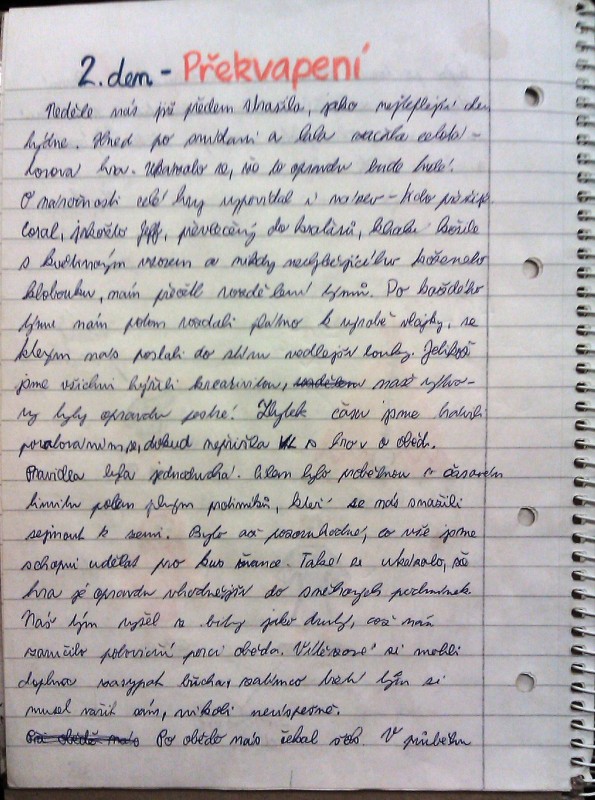 2. den - Překvapení
Neděle nás již předem strašila, jako nejteplejší den
týdne. Hned po snídani a začala celotá-
borová hra. Ukázalo se, že to opravdu bude
O náročnosti celé hry vypovídal i název - Kdo přežije
Coral, jakožto Jeff, převlečený do kraťasů, khaki košile
s květinovým vzorem a nikdy nechybějícího koženého
klobouku, nám přečetl rozdělení týmů. Do každého
týmu nám potom rozdali plátno k výrobě vlajky, se
kterým nás poslali do stínu vedlejší louky. Jelikož
jsme všichni hýřili kreativitou, naše výtvo-
ry byly opravdu pestré! Zbytek času jsme trávili
dokud nepřišla VL s hrou o oběd.
Pravidla byla jednoduchá. Cílem bylo proběhnou v časovém
limitu polem plným protivníků, kteří se nás snažili
sejmout k zemi. Bylo až pozoruhodné, co vše jsme
schopni udělat pro kus žvance. Také se ukázalo, že
hra je opravdu vhodnější do sněhových podmínek.
Náš tým vyšel z bitvy jako druhý, což nám
zaručilo poloviční porci oběda. Vítězové si mohli
doplna nasypat břicha, zatímco třetí tým si
musel vařit sám, nikoli neúspěšně.
Po obědě nás čekal V průběhu